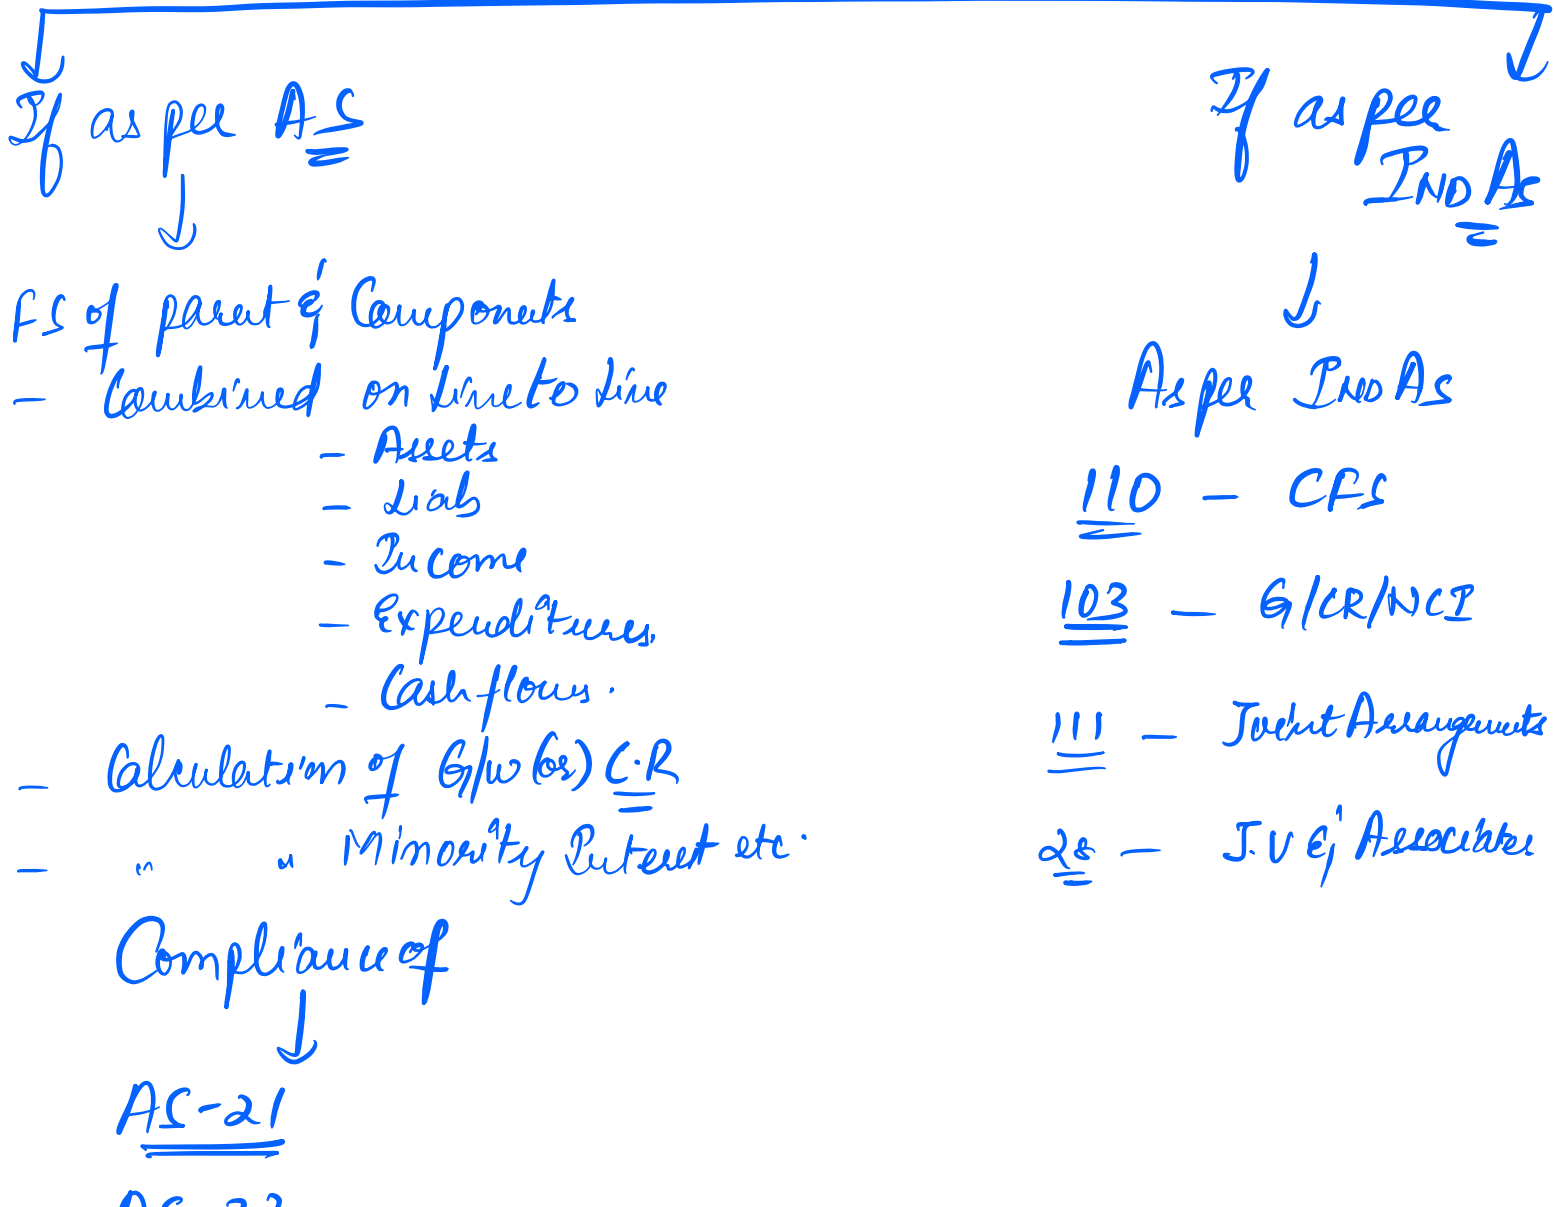 If as per AS
FS of parent & Components
- Combined on Line to Line
- Assets
- Liab
- Income
- Expenditures.
- Cash flows.
- Calculation of G/w (or) C.R
- " " Minority Interest etc.
Compliance of
AS-21
If as per
IND AS
As per IND AS
110 - CFS
103 - G/CR/NCI
111 - Joint Arrangements
28 - J.V & Associates